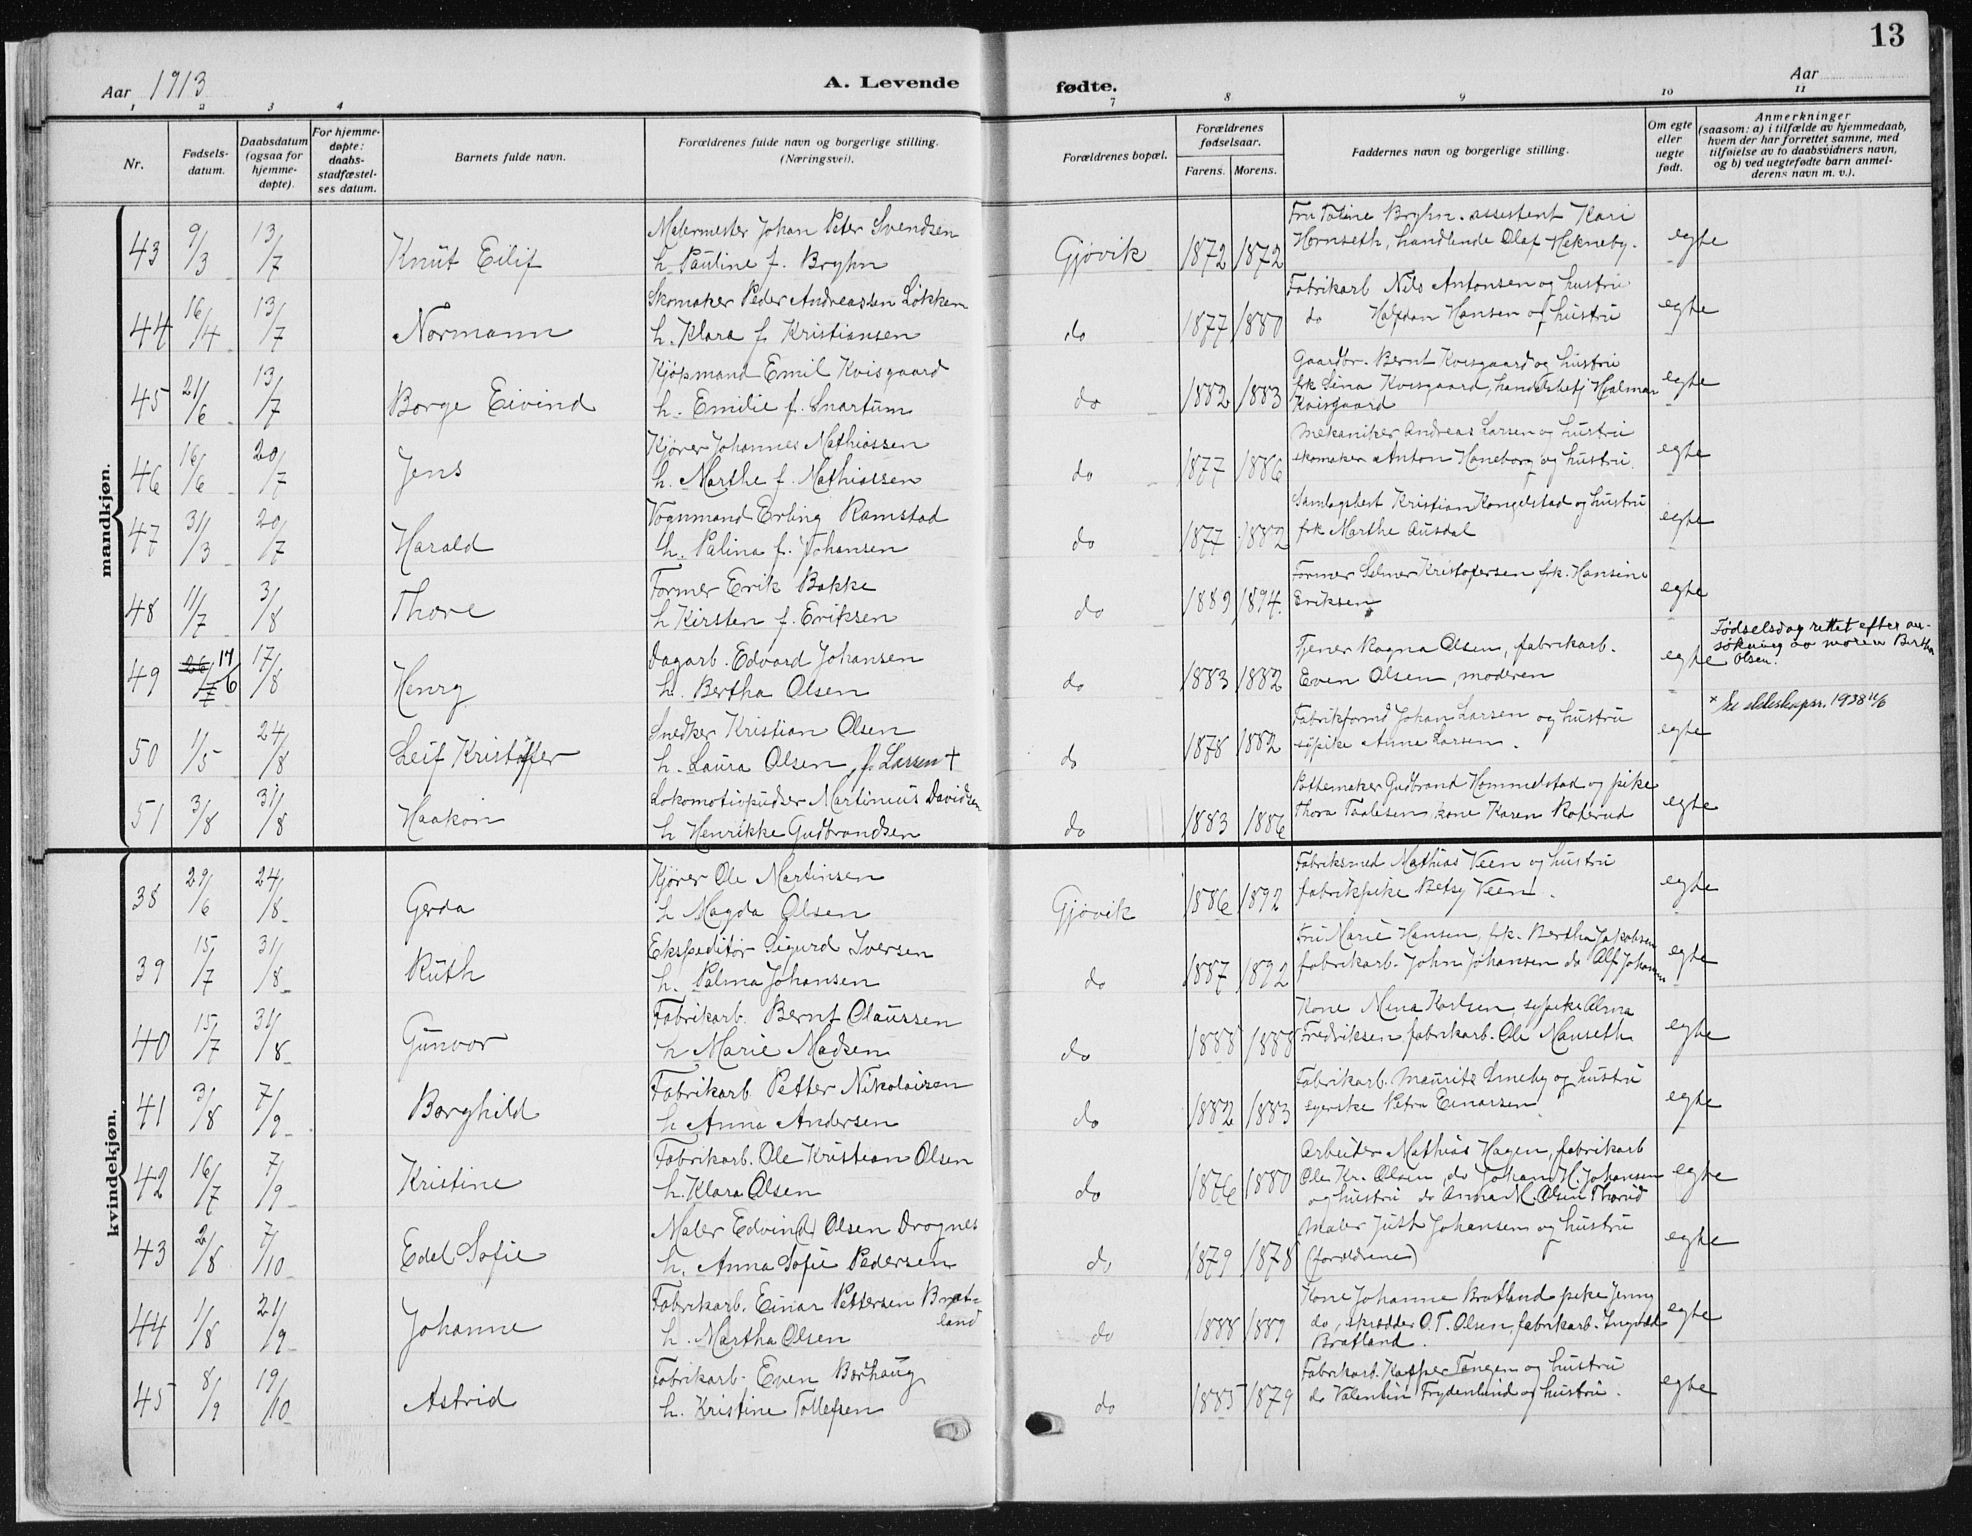 13
Aar 1913
A. Levende fødte.
Aar
1 2 3 4 7 8 9 10 11
Nr.
Fødsels-
datum.
Daabsdatum
(ogsaa for
hjemme-
døpte).
For hjemme-
døpte:
daabs-
stadfæstel-
ses datum.
Barnets fulde navn.
Forældrenes fulde navn og borgerlige stilling.
(Næringsvei).
Forældrenes bopæl.
Forældrenes
fødselsaar.
Farens. Morens.
Faddernes navn og borgerlige stilling.
Om egte
eller
uegte
født.
Anmerkninger
(saasom: a) i tilfælde av hjemmedaab,
hvem der har forrettet samme, med
tilføielse av to daabsvidners navn,
og b) ved uegtefødte barn anmel-
derens navn m. v.).
mandkjøn.
43 9/3 13/7 Knut Eilif
Malermester Johan Peter Svendsen
h. Pauline f. Bryhn
Gjøvik 1872 1872
Fru Toline Bryhn. assistent Kari
Hornseth, handlende Olaf Hekneby.
egte
44 16/4 13/7 Normann
Skomaker Peder Andreassen Løkken
h. Klara f. Kristiansen
do 1877 1880
Fabrikarb Nils Antonsen og hustru
do Halfdan Hansen og hustru
egte
45 21/6 13/7 Borge Eivind
Kjøpmand Emil Kvisgaard
h. Emilie f. Snartum
do 1882 1883
Gaardbr. Bernt Kvisgaard og hustru
frk Lina Kvisgaard, handelsbetj Hjalmar
Kvisgaard
egte
46 16/6 20/7 Jens
Kjører Johannes Mathiassen
h. Marthe f. Mathiassen
do 1877 1886
Mekaniker Andreas Larsen og hustru
skomaker Anton Haneborg og hustru.
egte
47 31/3 20/7 Harald
Vognmand Erling Ramstad
h. Palina f. Johansen
do 1877 1882
Samlagsbest Kristian Kongelstad og hustru
frk Marthe Ausdal
egte
48 11/7 3/8 Thore
Former Erik Bakke
h Kirsten f. Eriksen
do 1889 1894.
Former Selmer Kristofersen frk. Hansine
Eriksen
egte
49 26/7 17/6 17/8 Henry
Dagarb. Edvard Johansen
h. Bertha Olsen
do 1883 1882
Tjener Ragna Olsen, fabrikarb.
Even Olsen, moderen
egte
Fødselsdag rettet efter an-
søkning av moren Bertha
Olsen.
50 1/5 24/8 Leif Kristoffer
Snedker Kristian Olsen
h. Laura Olsen, f. Larsen +
do 1878 1882
Fabrikformd Johan Larsen og hustru
sypike Anne Larsen.
egte
51 3/8 31/8 Haakon
Lokomotivpudser Martinius Davidsen
h Henrikke Gudbrandsen
do 1883 1886
Pottemaker Gudbrand Hommelstad og pike
Thora Taalesen, kone Karen Roterud
egte
kvindekjøn.
38 29/6 24/8 Gerda
Kjører Ole Martinsen
h Magda Olsen
Gjøvik 1886 1892
Fabriksmed Mathias Veen og hustru
fabrikpike Betsy Veen.
egte
39 15/7 31/8 Ruth
Ekspeditør Sigurd Iversen
h. Palma Johansen
do 1887 1892
Fru Marie Hansen, frk. Bertha Jakobsen
fabrikarb. John Johansen do Alf Johansen
egte
40 15/7 31/8 Gunvor
Fabrikarb. Bernt Olaussen
h Marie Madsen
do 1888 1888
Kone Mina Karlsen, sypike Alma
Fredriksen fabrikarb. Ole Manseth
egte
41 3/8 7/9 Borghild
Fabrikarb Petter Nikolaisen
h Anna Andersen
do 1882 1883
Fabrikarb. Maurits Smeby og hustru
syerske Petra Einarsen
egte
42 16/7 7/9 Kristine
Fabrikarb. Ole Kristian Olsen
h. Klara Olsen
do 1876 1880
Arbeider Mathias Hagen, fabrikarb
Ole Kr. Olsen, do Johan M. Johansen
og hustru do Anna M. Olsen Thorud
egte
43 2/8 7/10 Edel Sofie
Maler Edvin(d) Olsen Drognes
h. Anna Sofie Pedersen
do 1879 1878
Maler Just Johansen og hustru
(forældrene)
egte
44 1/8 21/9 Johanne
Fabrikarb. Einar Pettersen Brat-
land
h. Martha Olsen
do 1888 1889
Kone Johanne Bratland pike Jenny
do, skrædder O. T. Olsen, fabrikarb. Ingvald
Bratland.
egte
45 8/9 19/10 Astrid
Fabrikarb. Even Borhaug
h. Kristine Tollefsen
do 1885 1879
Fabrikarb. Kasper Tangen og hustru
do Valentin Frydenlund og hustru.
egte